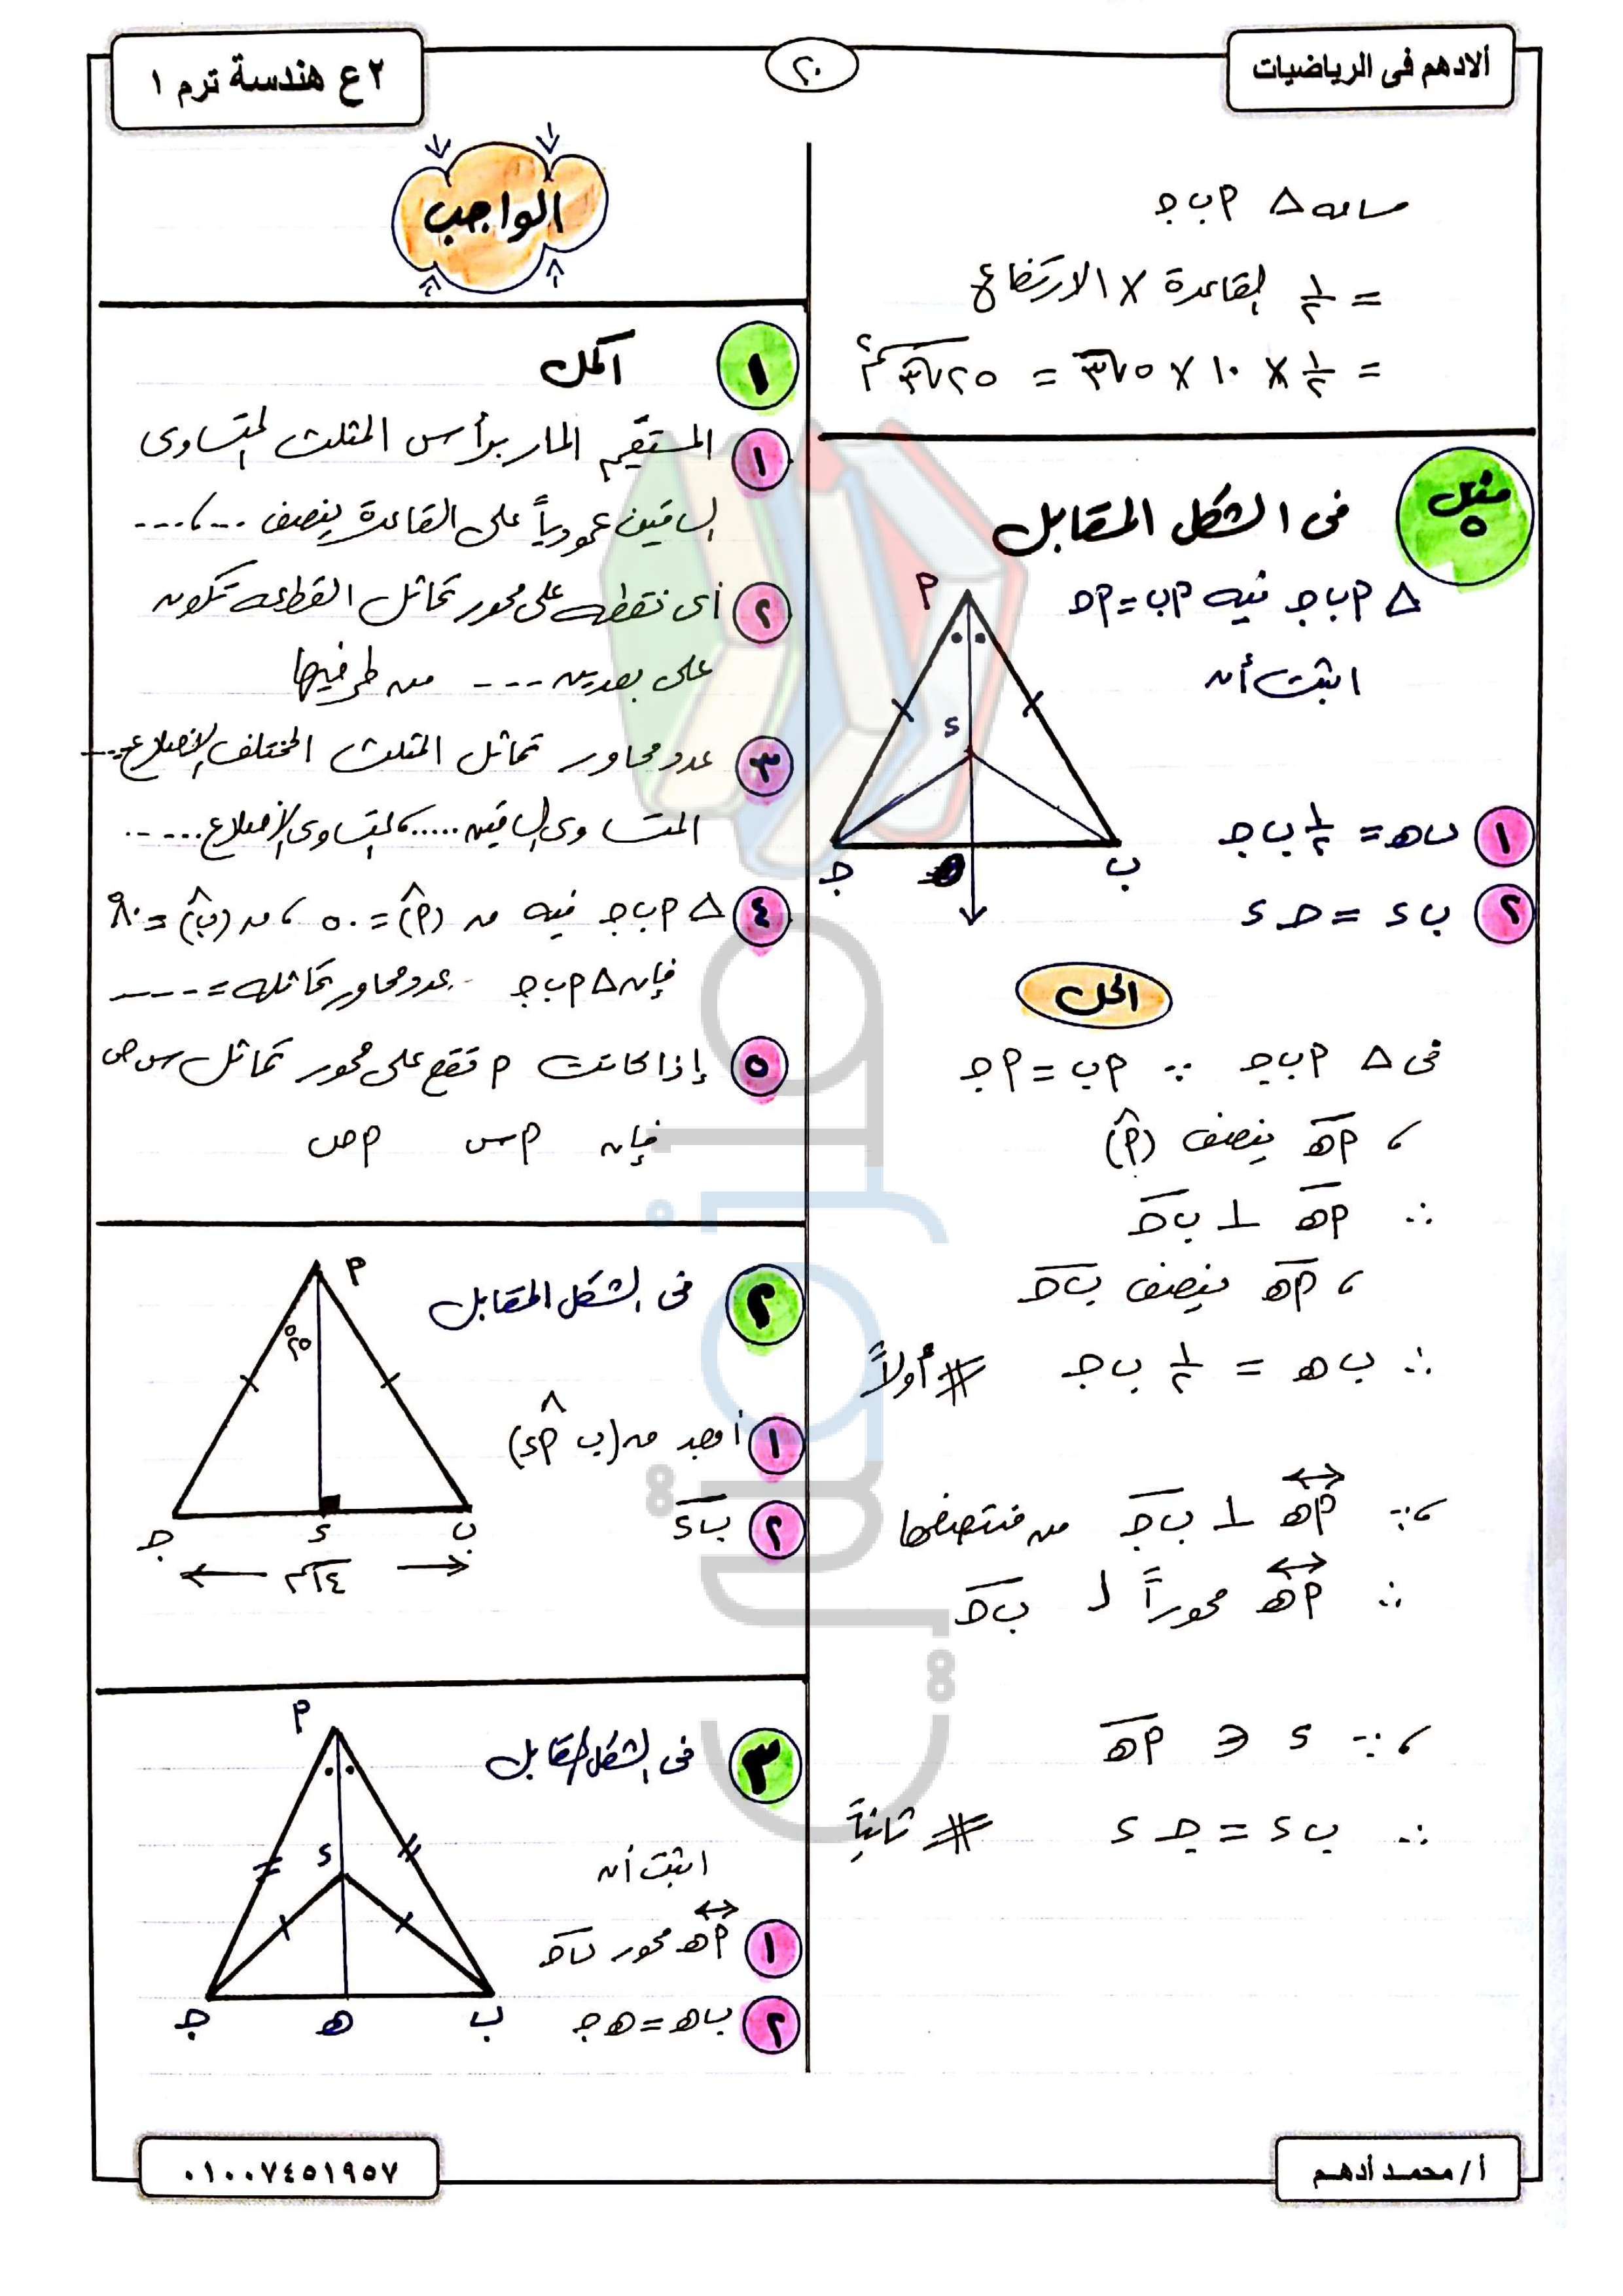 ألادهم فى الرياضيات
٢٠
٢ع هندسة ترم ١
مساحة △ ٩ ب جـ
= ١/٢ القاعدة × الارتفاع
= ١/٢ × ١٠ × ٥√٣ = ٢٥√٣ سم٢
مثال ٥
فى الشكل المقابل
△ ٩ ب جـ فيه ٩ ب = ٩ حـ
اثبت أن
١ ب هـ = ١/٢ ب جـ
٢ ب ء = حـ ء
٩
ء
جـ
ب
الحل
فى △ ٩ ب جـ ∵ ٩ ب = ٩ جـ
، ٩ هـ ينصف (٩^)
∴ ٩ هـ ⊥ ب حـ
، ٩ هـ ينصف ب حـ
∴ ب هـ = ١/٢ ب جـ # أولاً
، ∵ ٩ هـ ⊥ ب حـ من منتصفها
∴ ٩ هـ محوراً لـ ب حـ
، ∵ ء ∈ ٩ هـ
∴ ب ء = جـ ء # ثانياً
الواجب
١ اكمل
١ المستقيم المار برأس المثلث المتساوى
الساقين عمودياً على القاعدة ينصف ...،...
٢ أى نقطه على محور تماثل القطعه تكون
على بعدين --- من طرفيها
٣ عدد محاور تماثل المثلث المختلف الاضلاع ---
المتساوى الساقين ..... ، المتساوى الاضلاع .....
٤ △ ٩ ب جـ فيه ن (٩^) = ٥٠ ، ن (ب^) = ٨٠°
فإن △ ٩ ب جـ عدد محاور تماثله = ----
٥ إذا كانت ٩ تقع على محور تماثل س ص
فإن ٩ س ٩ ص
٢ فى الشكل المقابل
١ أوجد ن (ب ٩^ ء)
٢ ب ء
٩
٢٥°
جـ
ء
ب
١٤ سم
٣ فى الشكل المقابل
اثبت أن
١ ٩ هـ محور ب حـ
٢ ب هـ = هـ جـ
٩
ء
جـ
هـ
ب
أ / محمد أدهم
٠١٠٠٧٤٥١٩٥٧